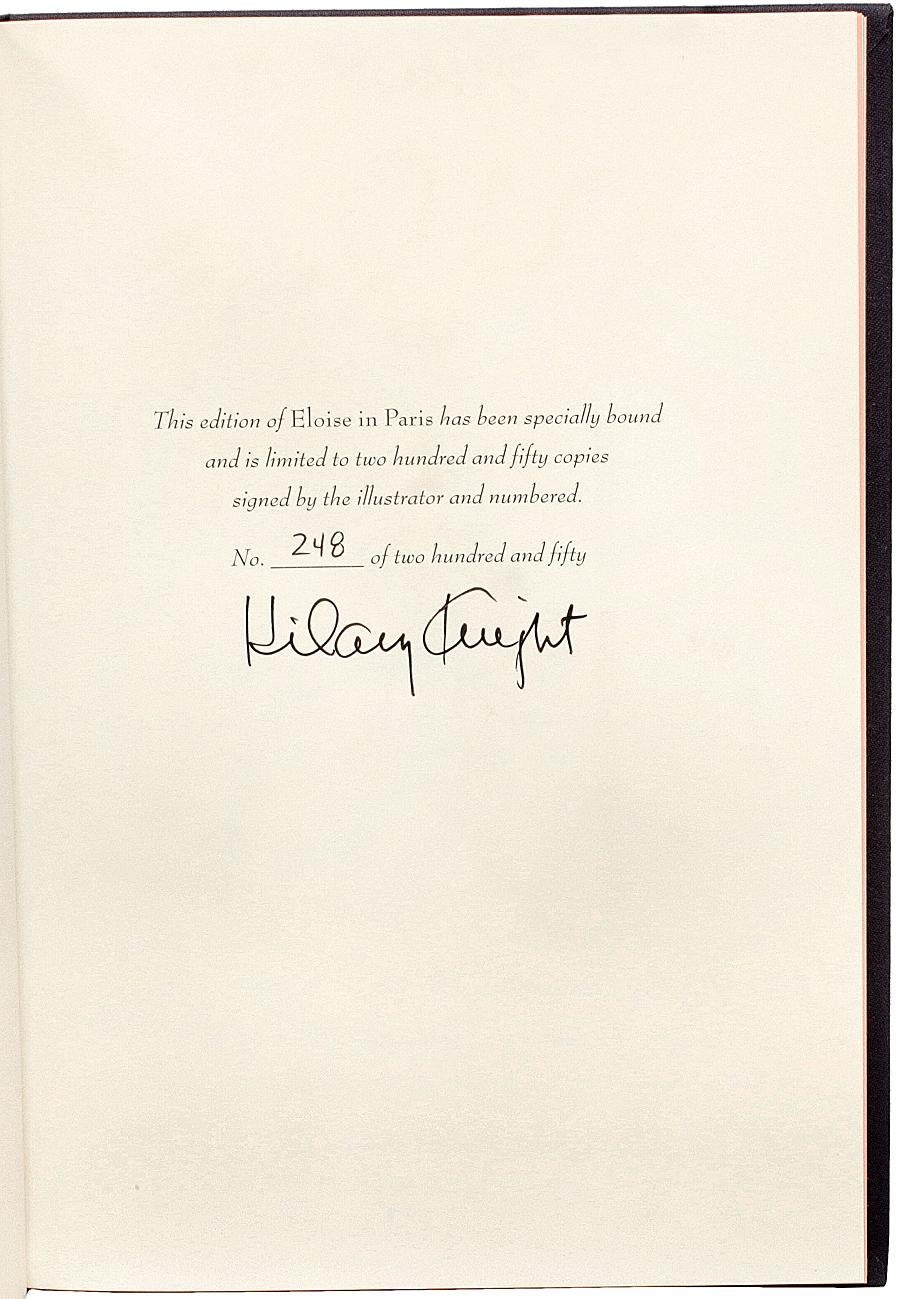 This edition of Eloise in Paris has been specially bound
and is limited to two hundred and fifty copies
signed by the illustrator and numbered.
No. 248 of two hundred and fifty
Hilary Knight